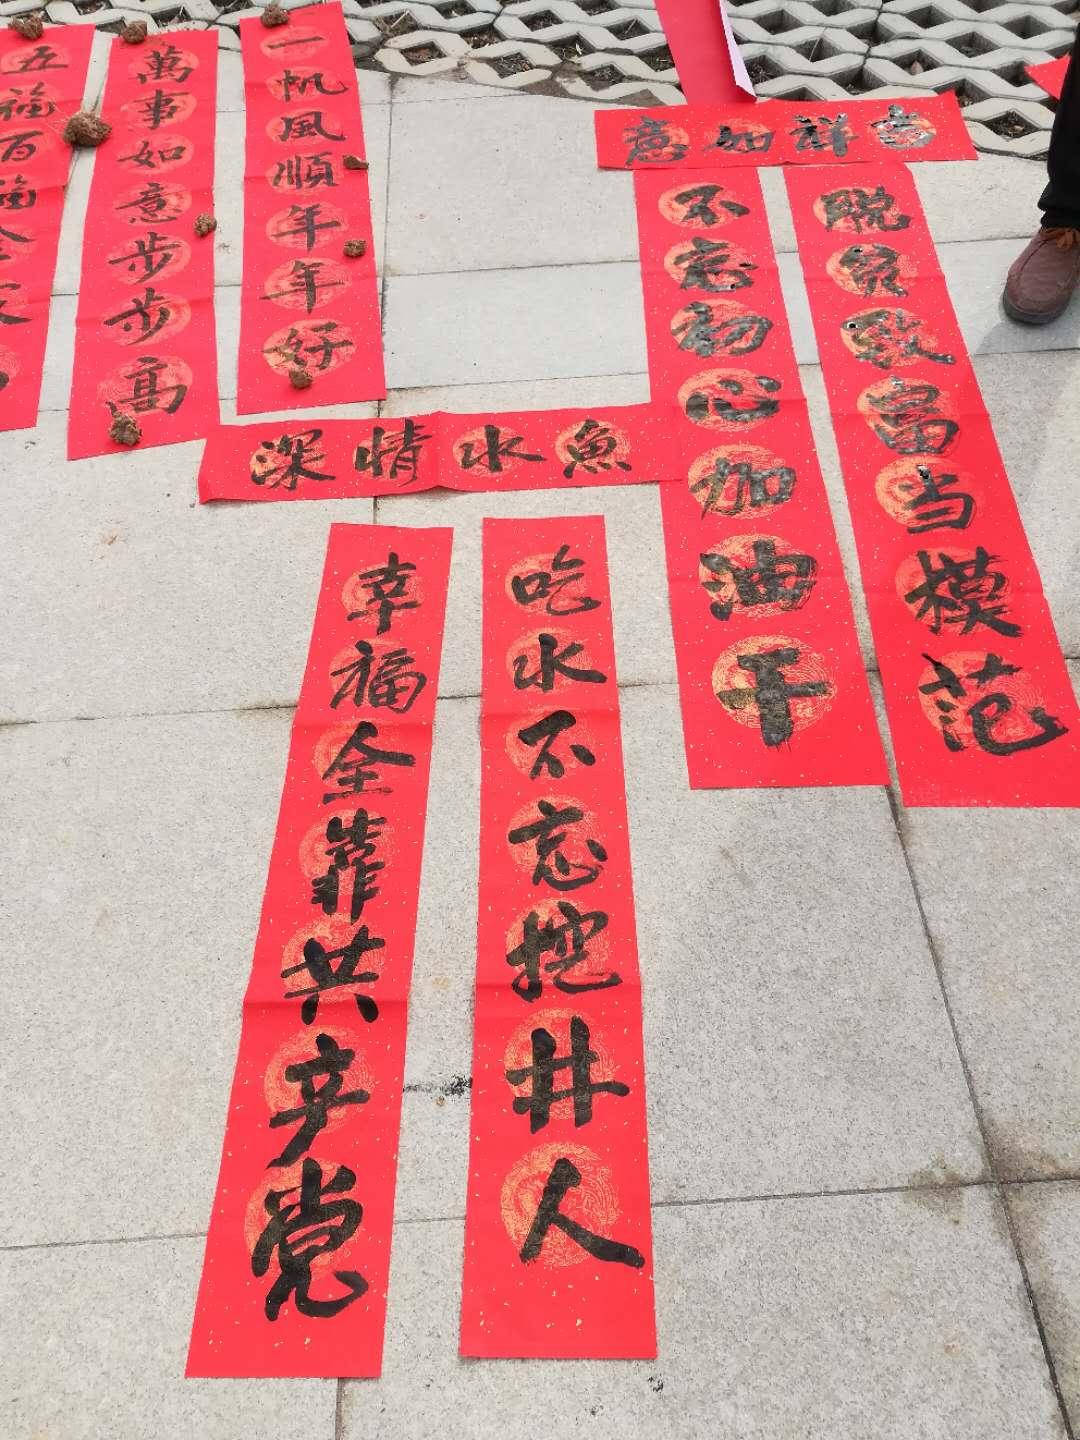 一帆風順年年好
萬事如意步步高
五福百福全家
吉祥如意
脱贫致富当模范
不忘初心加油干
魚水情深
吃水不忘挖井人
幸福全靠共产党